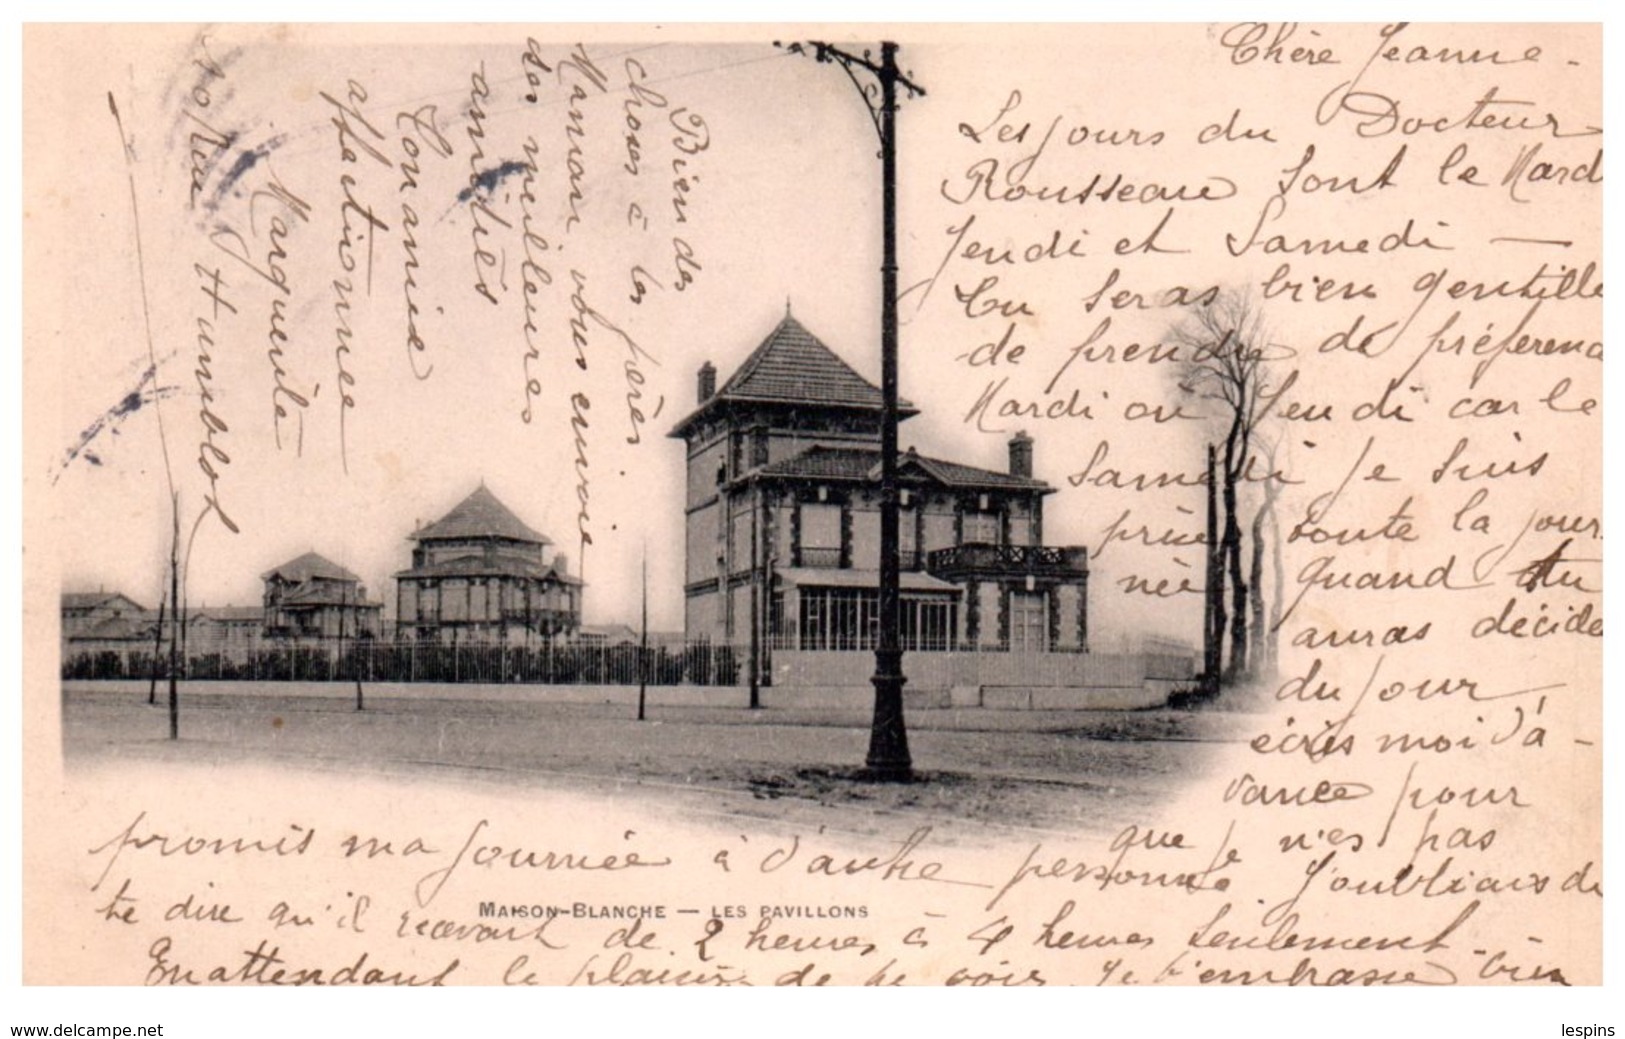 Chère Jeanne -
Les jours du Docteur
Rousseau sont le Mard
Jeudi et Samedi —
tu seras bien gentille
de prendre de préférenc
Mardi ou Jeudi car le
Samedi je suis
prise toute la jour-
née quand tu
auras décidé
du jour
écris moi d'a-
vance pour
que je n'es pas
promis ma journée à d'autre personne J'oubliais de
te dire qu'il recevait de 2 heures à 4 heures seulement -
En attendant le plaisir de te voir je t'embrasse bien
affectionnée
Marguerite
10 Rue Humblot
Bien des
choses à tes pères
Maman vous envoie
ses meilleures
amitiés
MAISON-BLANCHE — LES PAVILLONS
www.delcampe.net
lespins